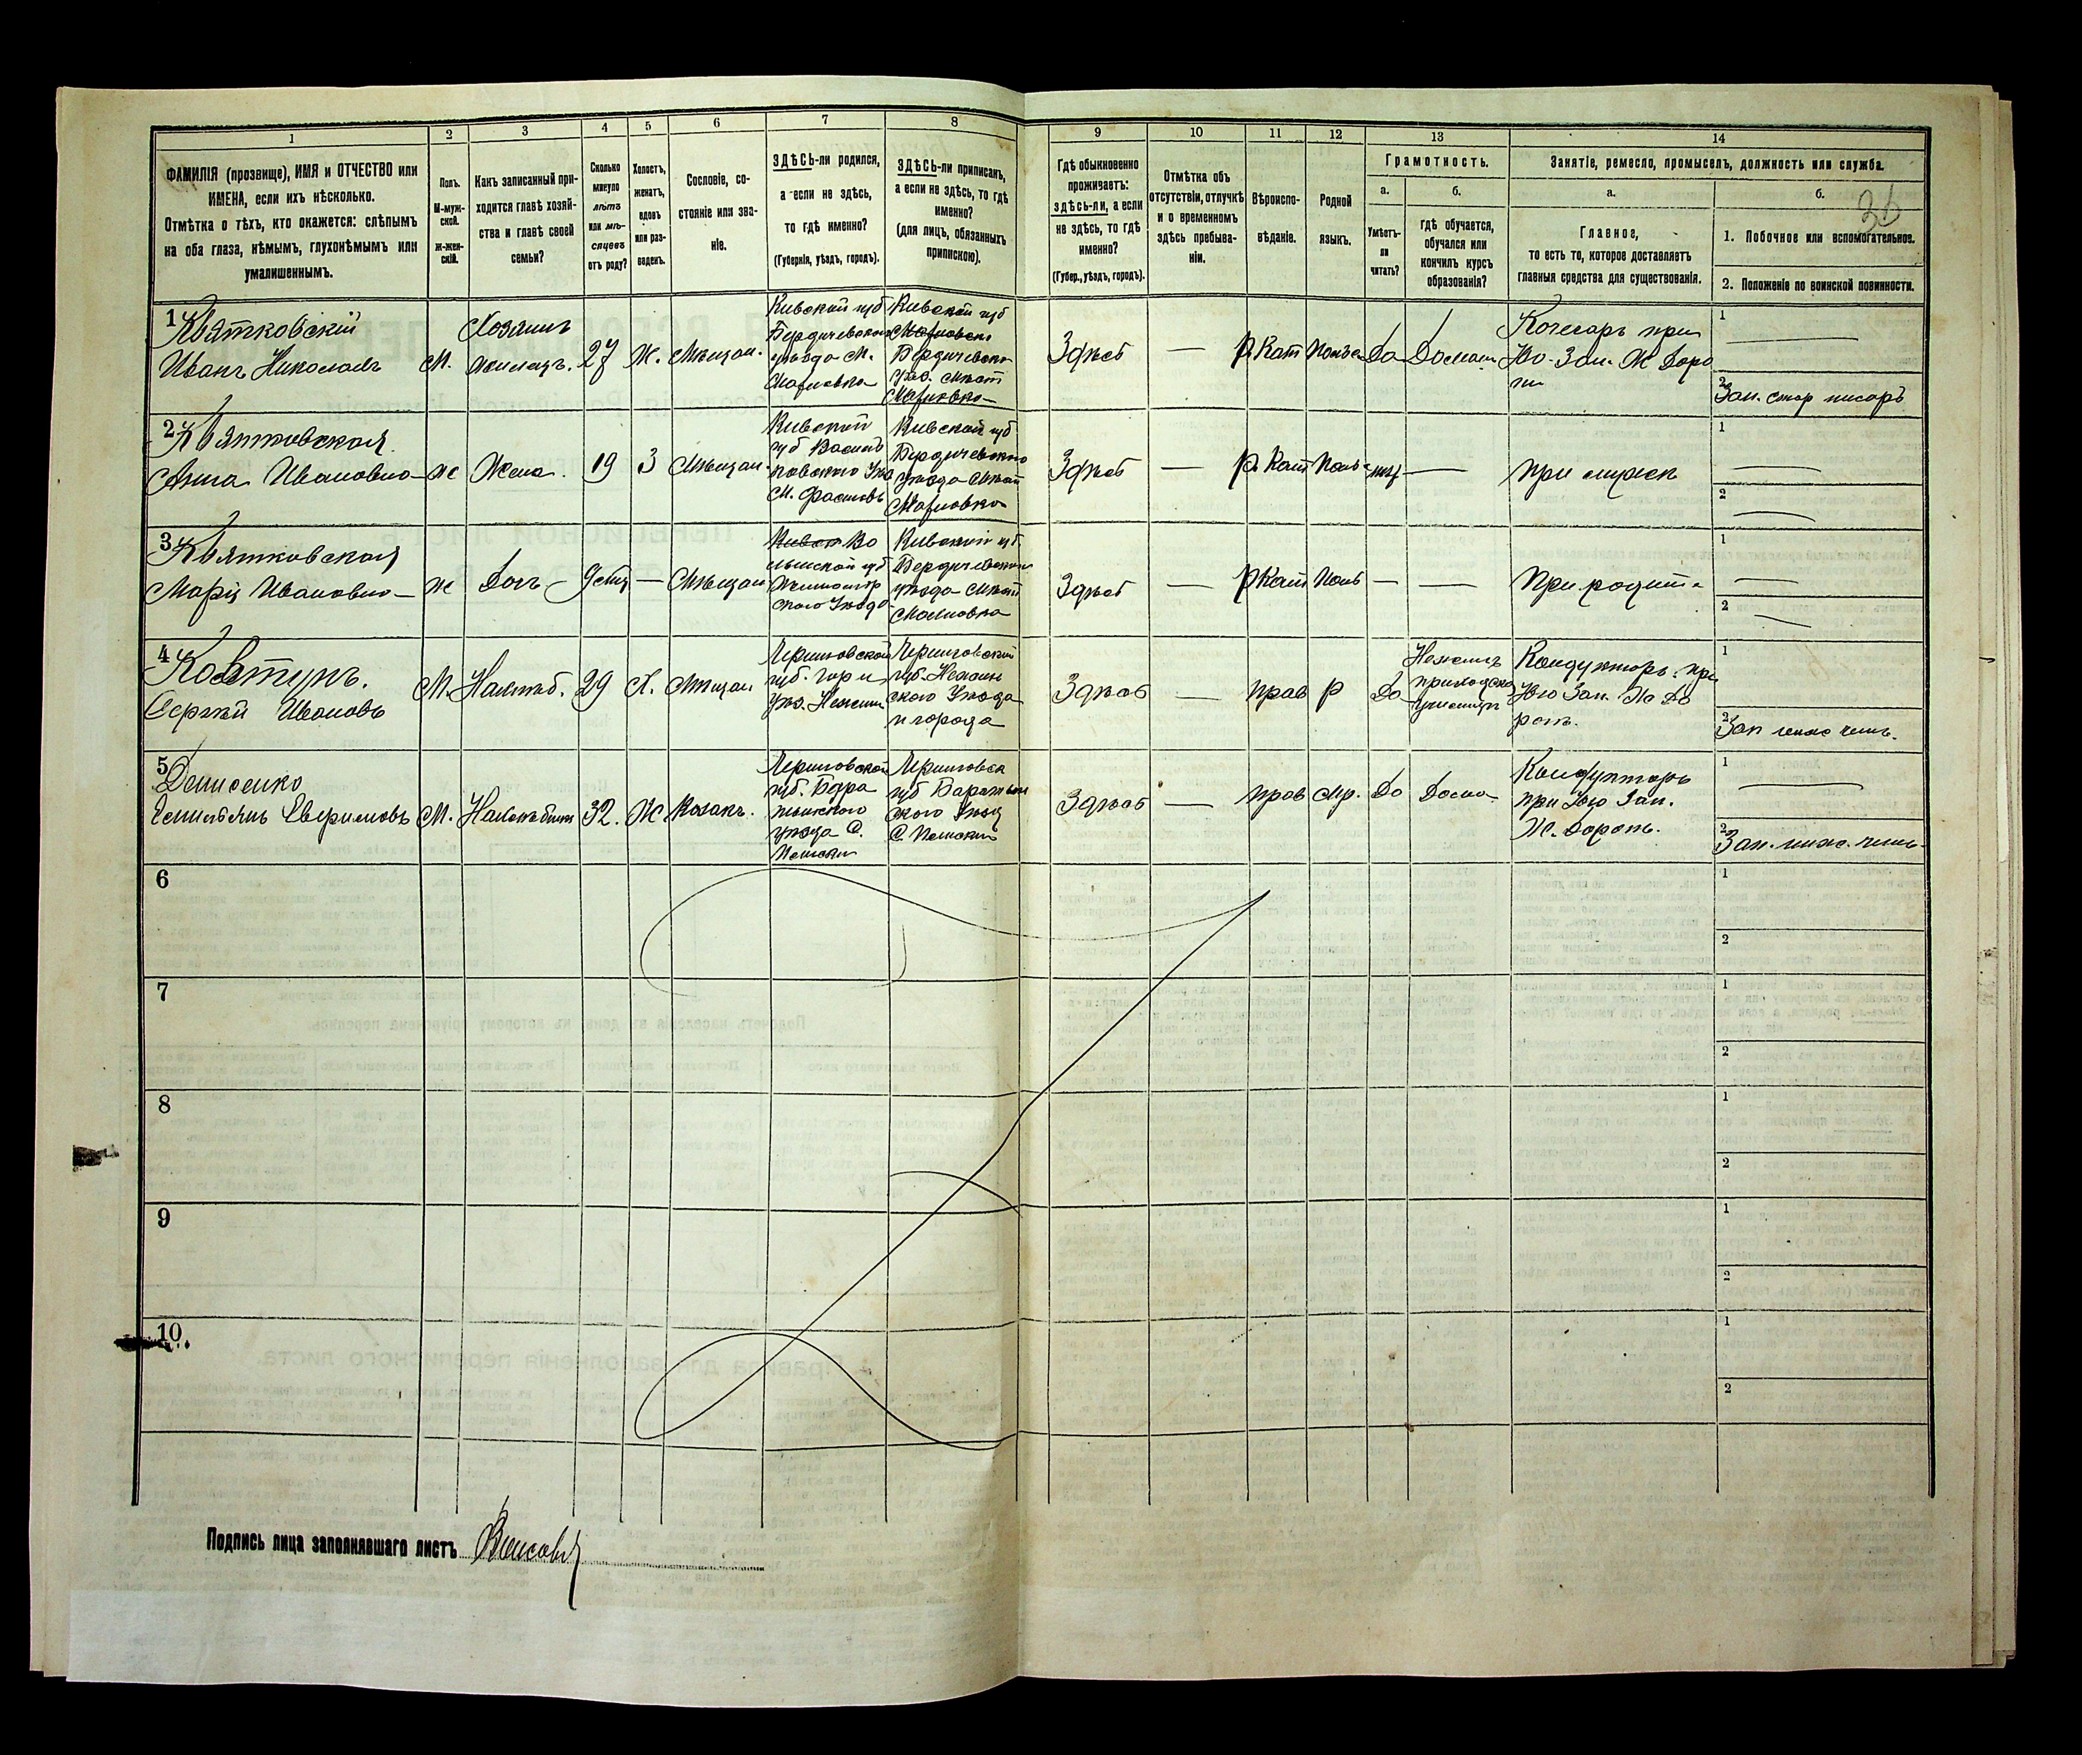 1 2 3 4 5 6 7 8 9 10 11 12 13 14
ФАМИЛІЯ (прозвище), ИМЯ и ОТЧЕСТВО или
ИМЕНА, если ихъ нѣсколько.
Отмѣтка о тѣхъ, кто окажется: слѣпымъ
на оба глаза, нѣмымъ, глухонѣмымъ или
умалишеннымъ.
Полъ.
М-муж-
ской.
ж-жен-
скій.
Какъ записанный при-
ходится главѣ хозяй-
ства и главѣ своей
семьи?
Сколько
минуло
лѣтъ
или мѣ-
сяцевъ
отъ роду?
Холостъ,
женатъ,
вдовъ
или раз-
веденъ.
Сословіе, со-
стояніе или зва-
ніе.
ЗДѢСЬ-ли родился,
а если не здѣсь,
то гдѣ именно?
(Губернія, уѣздъ, городъ).
ЗДѢСЬ-ли приписанъ,
а если не здѣсь, то гдѣ
именно?
(для лицъ, обязанныхъ
припискою).
Гдѣ обыкновенно
проживаетъ:
здѣсь-ли, а если
не здѣсь, то гдѣ
именно?
(Губер., уѣздъ, городъ).
Отмѣтка объ
отсутствіи, отлучкѣ
и о временномъ
здѣсь пребыва-
ніи.
Вѣроиспо-
вѣданіе.
Родной
языкъ.
Грамотность.
а.
Умѣетъ-
ли
читать?
б.
Гдѣ обучается,
обучался или
кончилъ курсъ
образованія?
Занятіе, ремесло, промыселъ, должность или служба.
а.
Главное,
то есть то, которое доставляетъ
главныя средства для существованія.
б.
36
1. Побочное или вспомогательное.
2. Положеніе по воинской повинности.
1 Квятковскій
Иванъ Николаевъ
М.
Хозяинъ
жилецъ.
27
Ж.
Мѣщан.
Кивской губ
Бердичевскаго
уѣзда М.
Махновка
Кивской губ
Махновско
Бердичевско
уѣз. Мѣст
Махновка
Здѣсь
—
р. Кат
Польск
Да
Домаш
Кочегаръ при
Юго-Зап. Ж Доро
ги
1
2 Зап. стар писарь
2 Квятковская
Анна Ивановна
ж
Жена.
19
З
Мѣщан.
Кивской
губ Василь
ковского Уѣз
М. Фастовъ
Кивской губ
Бердичевского
уѣзда Мѣст
Махновка
Здѣсь
—
р. Кат
Поль
—
при мужѣ
1
2
3 Квятковская
Марія Ивановна
ж
Дочь
9 мѣц
—
Мѣщан
Во
лынской губ
Житомир
ского Уѣзда
Кивской губ.
Бердичевского
уѣзда Мѣст
Махновка
Здѣсь
—
р Кат
Поль
—
—
При родит
1
2
4 Ковтунъ.
Сергѣй Ивановъ
М.
Нахлѣб.
29
Х.
Мѣщан
Черниговской
губ. гор и
уѣз. Нежин
Черниговской
губ. Нежин
ского Уѣзда
и города
Здѣсь
—
прав
р
Да
Нежинъ
приходско
училищѣ
Кондукторъ при
Юго Зап. Же До
рогѣ.
1
2 Зап нижн чинъ.
5 Денисенко
Емильянъ Ефримовъ
М.
Нахлѣбник
32.
Ж.
Козакъ.
Черниговской
губ. Борз
нянского
уѣзда С.
Плиски
Черниговск
губ
ского Уѣзд
С. Плиски
Здѣсь
—
прав
Мр.
Да
Дома
Кондукторъ
при Юго Зап.
Ж. дорогѣ.
1
2 Зап. нижн. чинъ.
6
1
2
7
1
2
8
1
2
9
1
2
10.
1
2
Подпись лица заполнявшаго листъ